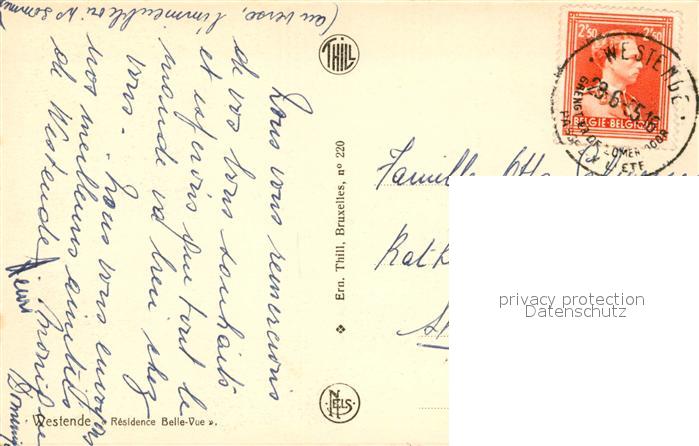 (au verso, l'immeuble où ns sommes
Nous vous remercions
de vos bons souhaits
et espérons que tout le
monde va bien chez
vous. - Nous vous envoyons
nos meilleurs amitiés
de Westende.
Monique
Henri
THILL
Ern. Thill, Bruxelles, nº 220
NELS
Westende « Résidence Belle-Vue ».
2'50 2'50
BELGIE-BELGIQUE
WESTENDE
29-6-55 16
Famille Otto
privacy protection
Datenschutz